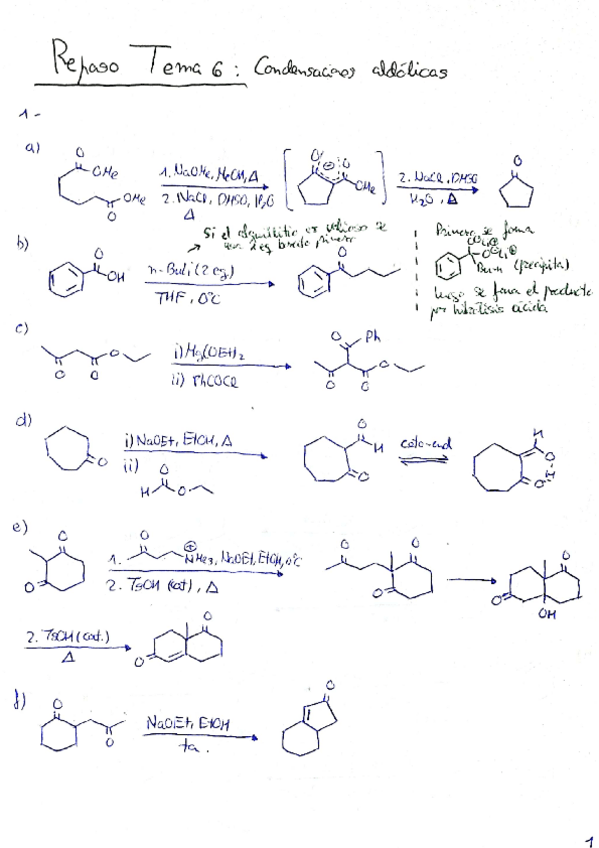 Repaso Tema 6: Condensaciones aldólicas
1-
a)
O
OMe
OMe
O
1. NaOMe, MeOH, Δ
2. NaCl, DMSO, H₂O
Δ
O ⊖ O
OMe
2. NaCl, DMSO
H₂O, Δ
O
b)
O
OH
Si el
se
n-BuLi (2 eq)
THF, 0°C
O
Primero se forma
Bu-n (precipita)
Luego se forma el producto
por hidrólisis ácida
c)
O O
O
i) Mg(OEt)₂
ii) PhCOCl
O Ph
O O
O
d)
O
i) NaOEt, EtOH, Δ
ii)
O
H O
O
H
O
ceto-enol
H
O
H
O
e)
O
O
1.
O
⊕
NMe₃, NaOEt, EtOH, 0°C
2. TsOH (cat), Δ
O O
O
O
O
OH
2. TsOH (cat.)
Δ
O
O
f)
O
O
NaOEt, EtOH
ta.
O
1